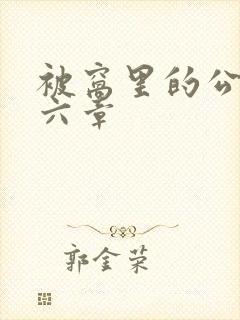 被窝里的公
六章
郭金荣